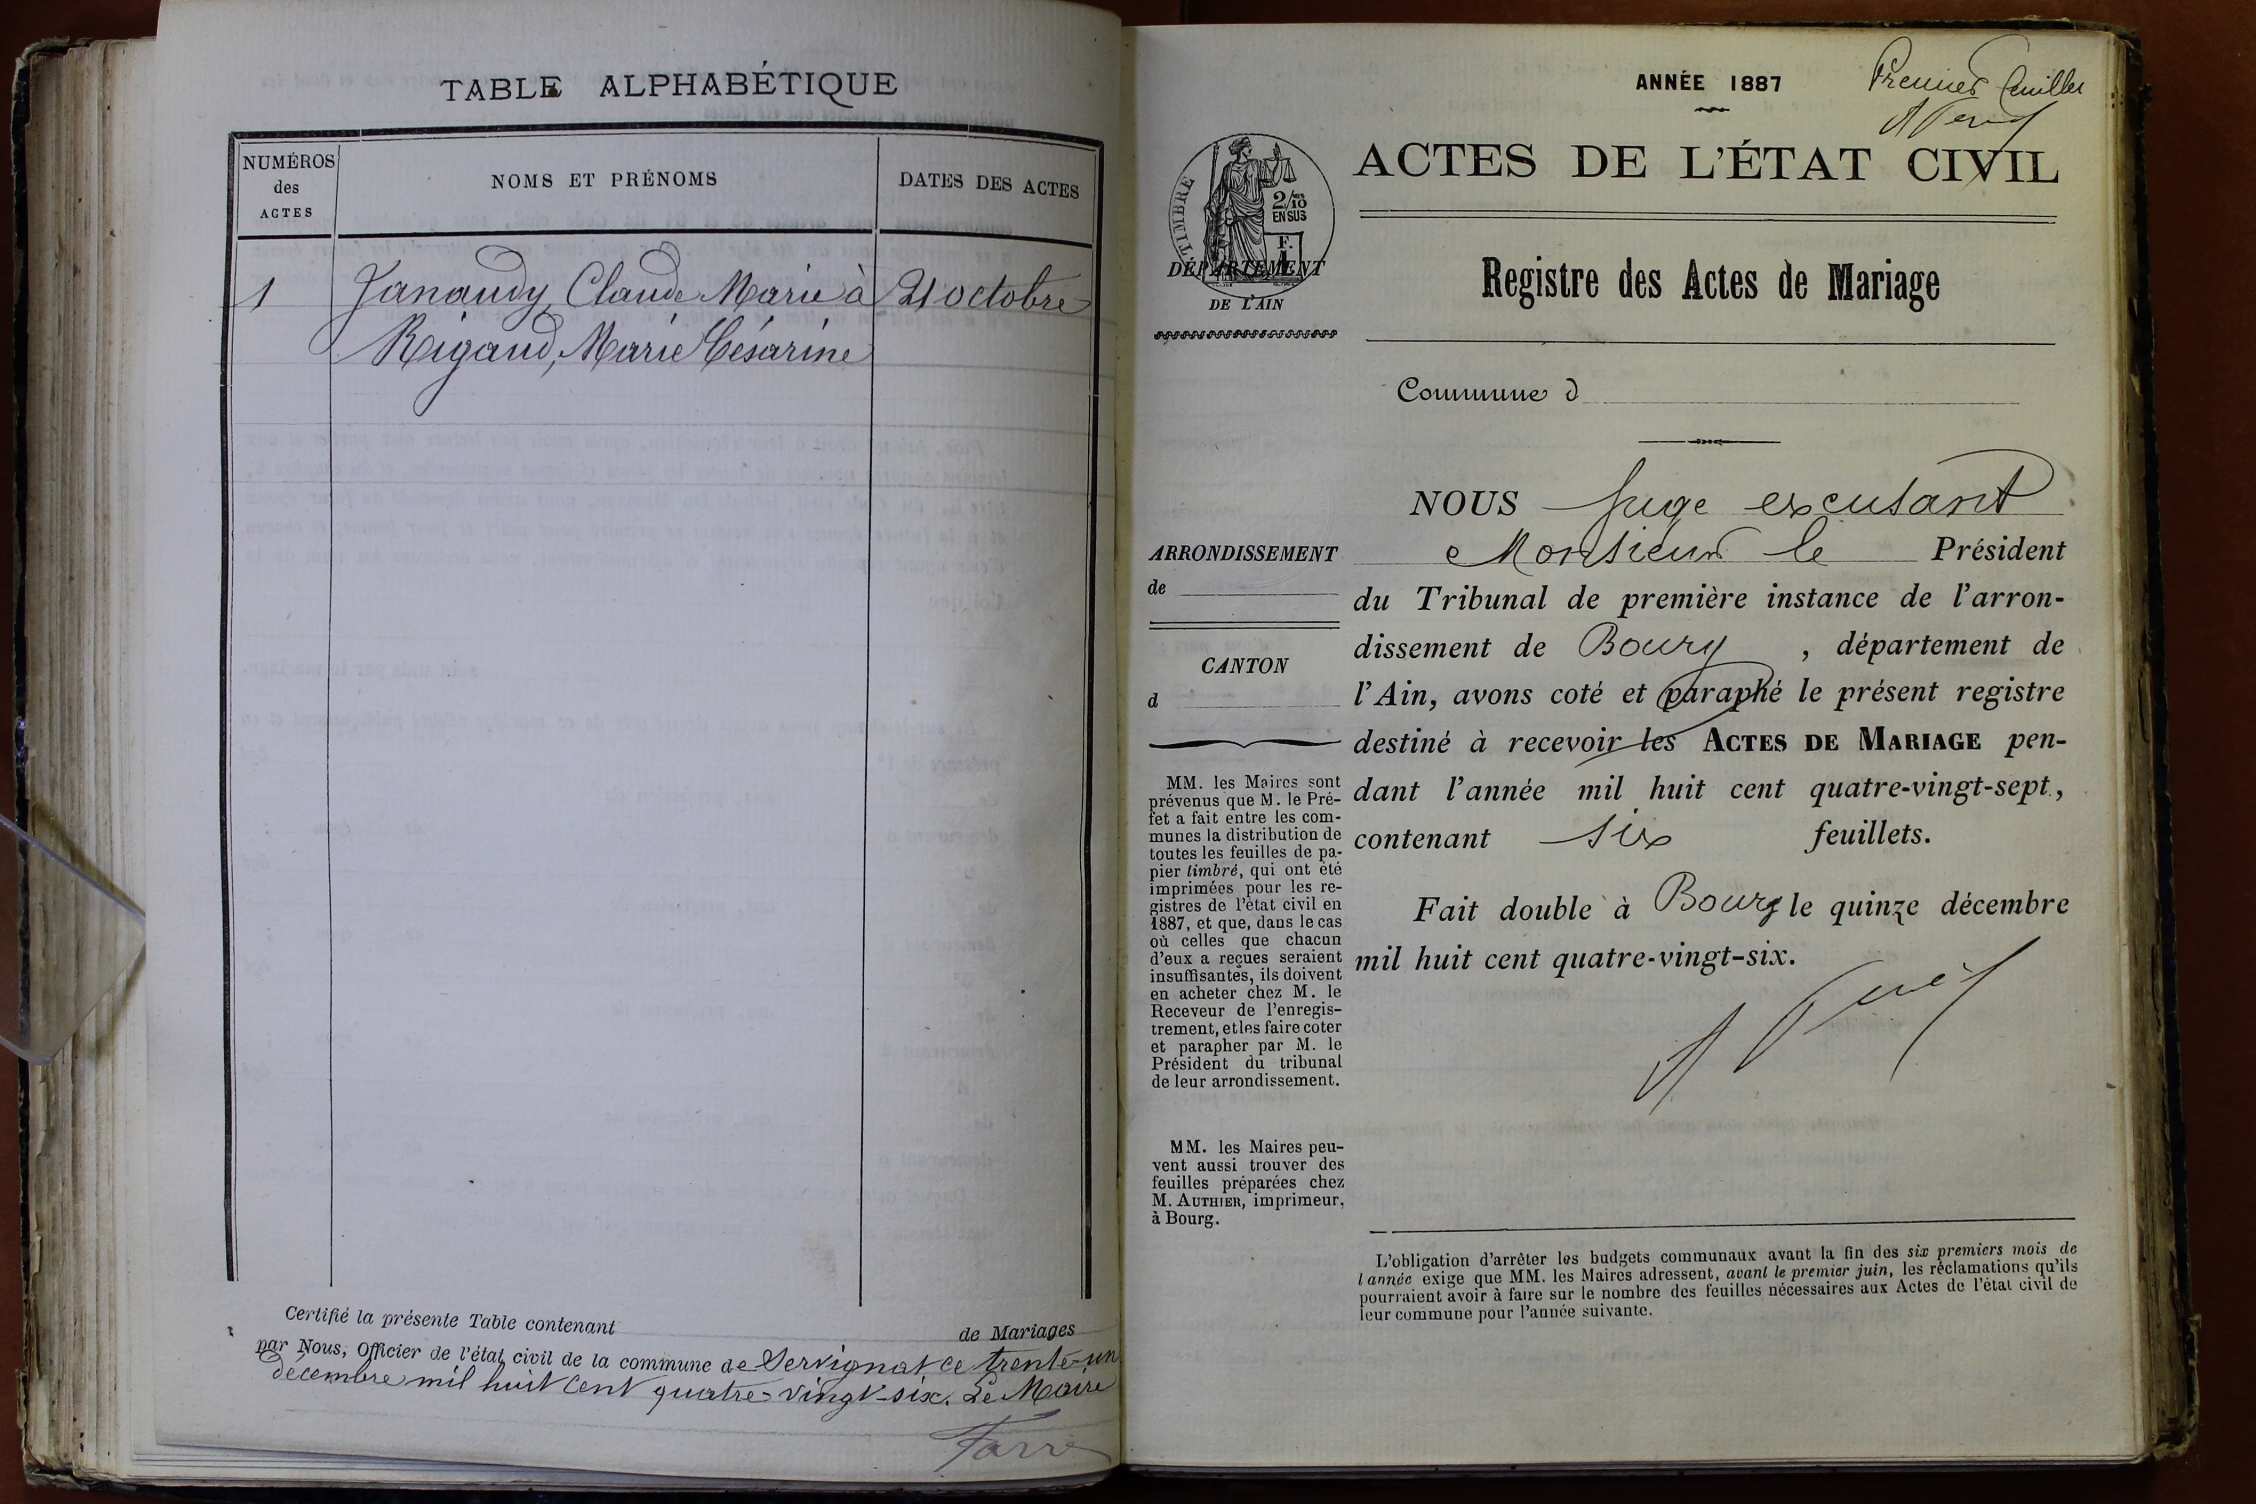 TABLE ALPHABÉTIQUE
NUMÉROS
des
ACTES
NOMS ET PRÉNOMS
DATES DES ACTES
1 Janaudy, Claude Marie à 21 octobre
Rigaud, Marie Césarine
Certifié la présente Table contenant de Mariages
par Nous, Officier de l'état civil de la commune de Servignat ce trente-un
décembre mil huit cent quatre-vingt-six. Le Maire
ANNÉE 1887
Premier feuillet
TIMBRE
2/10
EN SUS
F.
1
DÉPARTEMENT
DE L'AIN
ACTES DE L'ÉTAT CIVIL
Registre des Actes de Mariage
Commune d
ARRONDISSEMENT
de
CANTON
d
MM. les Maires sont
prévenus que M. le Pré-
fet a fait entre les com-
munes la distribution de
toutes les feuilles de pa-
pier timbré, qui ont été
imprimées pour les re-
gistres de l'état civil en
1887, et que, dans le cas
où celles que chacun
d'eux a reçues seraient
insuffisantes, ils doivent
en acheter chez M. le
Receveur de l'enregis-
trement, et les faire coter
et parapher par M. le
Président du tribunal
de leur arrondissement.
MM. les Maires peu-
vent aussi trouver des
feuilles préparées chez
M. AUTHIER, imprimeur,
à Bourg.
NOUS Juge excusant
Monsieur le Président
du Tribunal de première instance de l'arron-
dissement de Bourg, département de
l'Ain, avons coté et paraphé le présent registre
destiné à recevoir les ACTES DE MARIAGE pen-
dant l'année mil huit cent quatre-vingt-sept,
contenant six feuillets.
Fait double à Bourg le quinze décembre
mil huit cent quatre-vingt-six.
L'obligation d'arrêter les budgets communaux avant la fin des six premiers mois de
l'année exige que MM. les Maires adressent, avant le premier juin, les réclamations qu'ils
pourraient avoir à faire sur le nombre des feuilles nécessaires aux Actes de l'état civil de
leur commune pour l'année suivante.